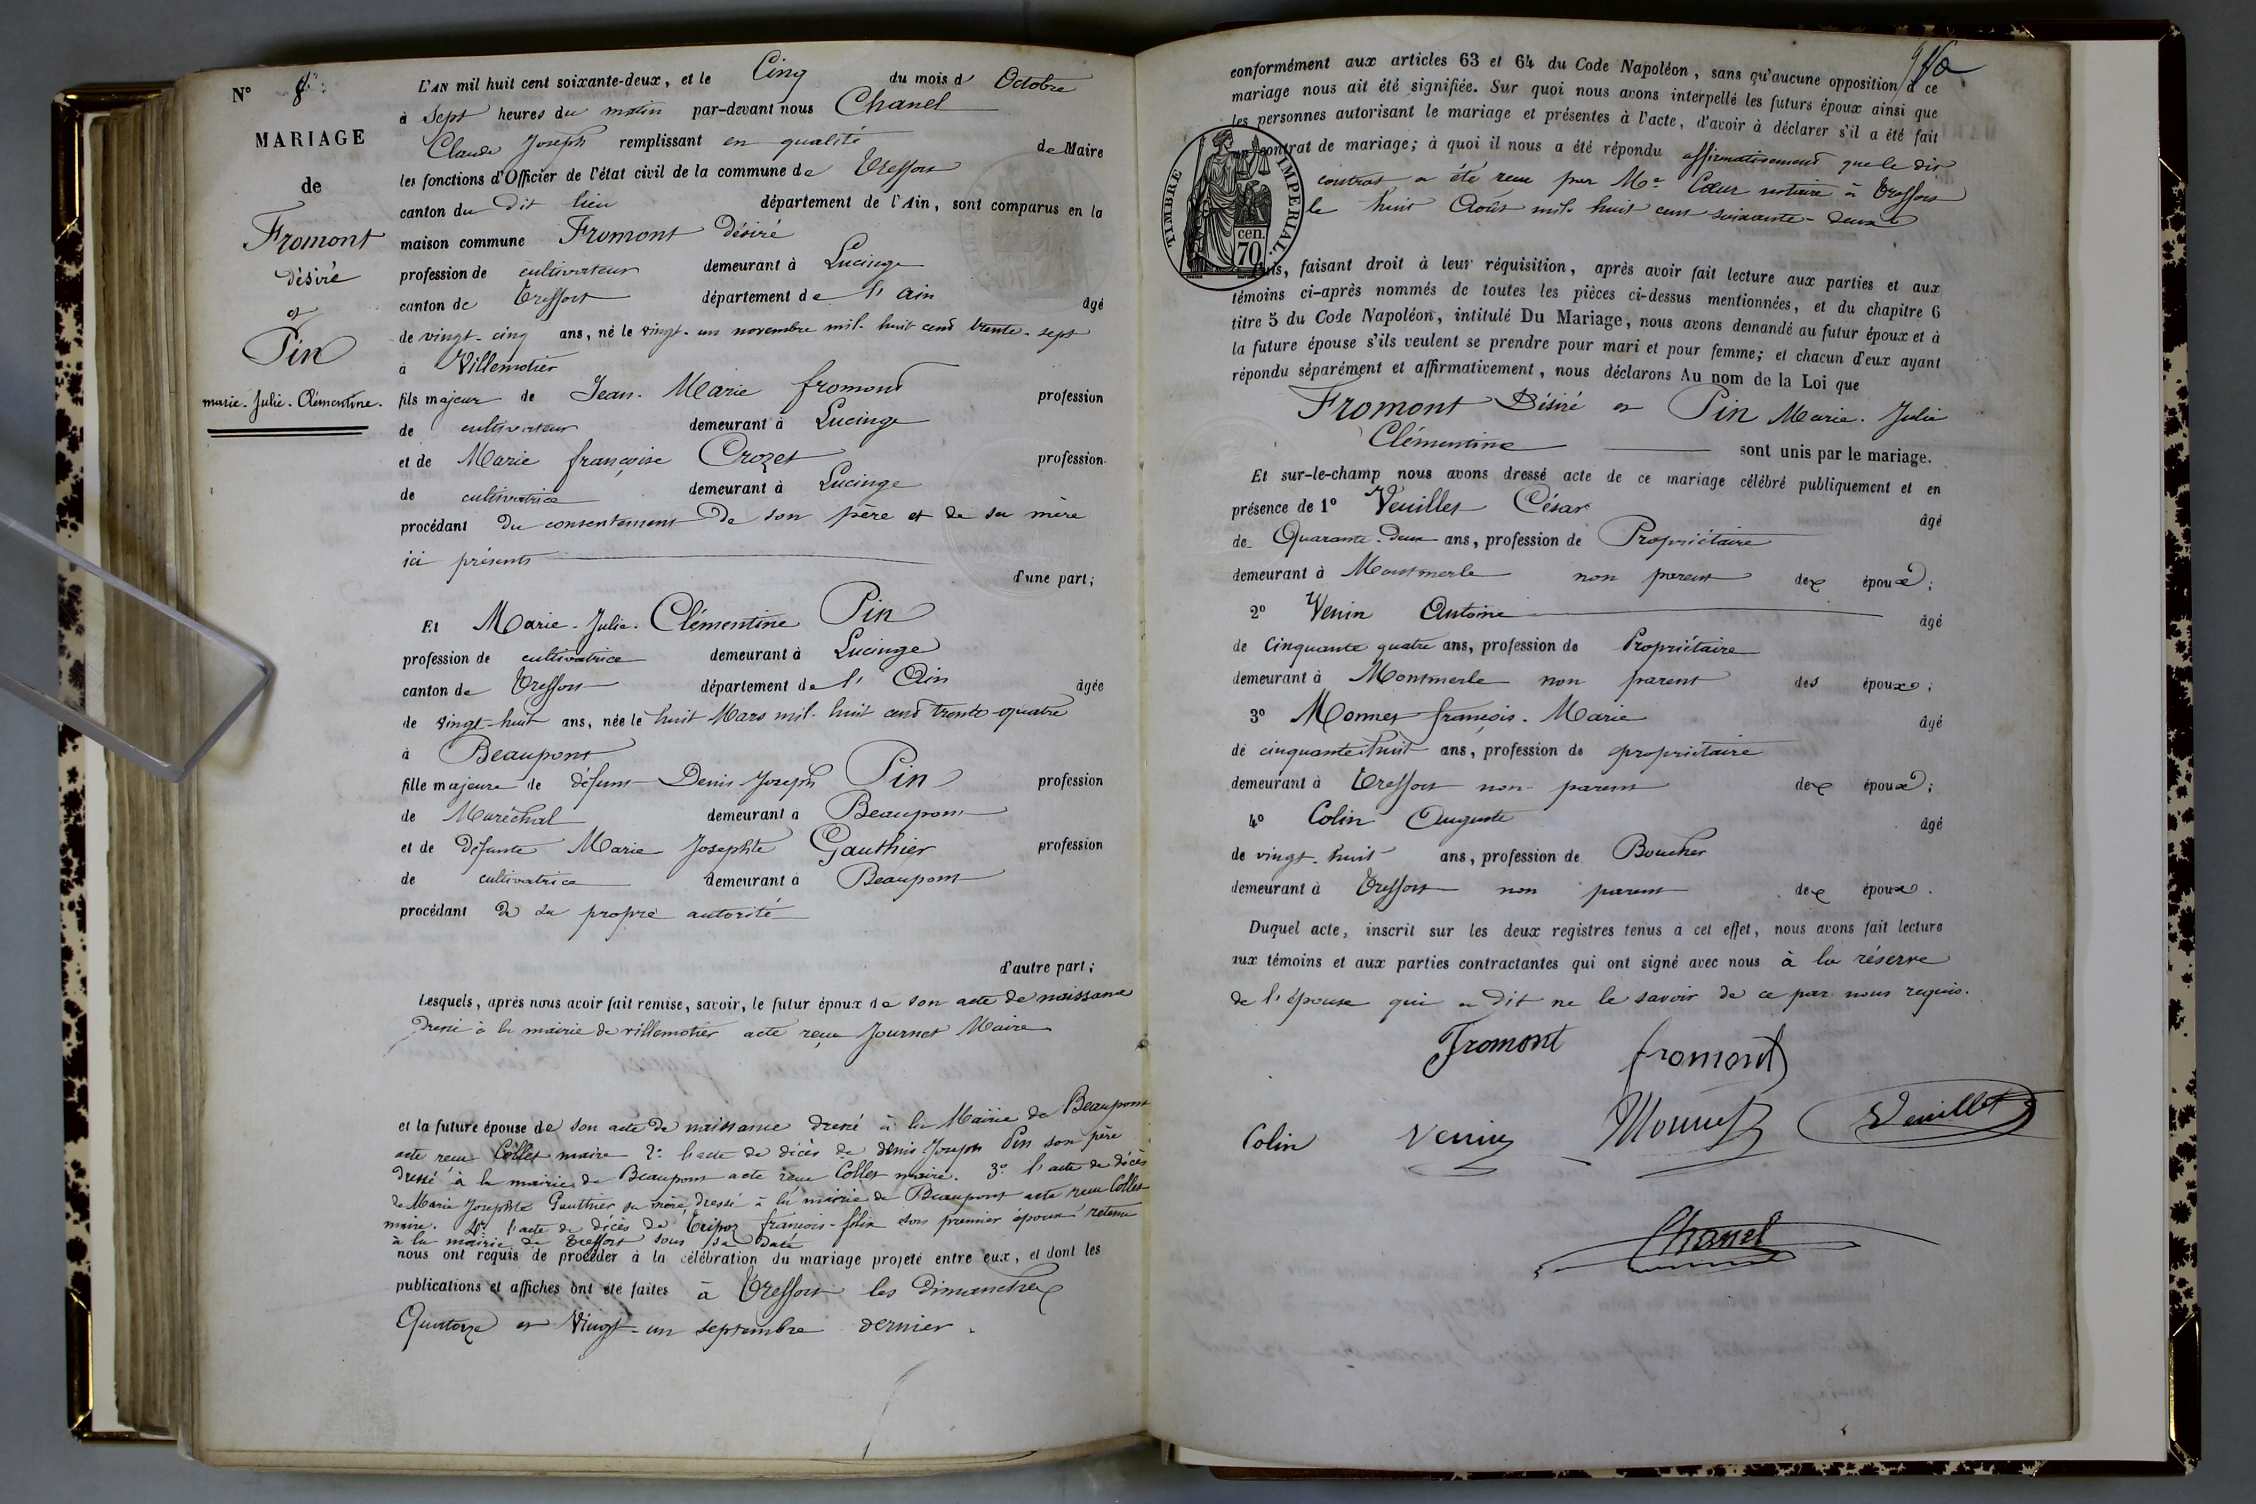 N° 8
MARIAGE
de
Fromont
désiré
et
Pin
marie-Julie-Clémentine.
L'AN mil huit cent soixante-deux, et le Cinq du mois d' Octobre
à Sept heures du matin par-devant nous Chanel
Claude Joseph remplissant en qualité de Maire
les fonctions d'Officier de l'état civil de la commune de Treffort
canton du dit lieu département de l'Ain, sont comparus en la
maison commune Fromont désiré
profession de cultivateur demeurant à Lucinge
canton de Treffort département de l'ain âgé
de vingt-cinq ans, né le vingt-un novembre mil-huit cent trente-sept
à Villemotier
fils majeur de Jean-Marie fromont profession
de cultivateur demeurant à Lucinge
et de Marie françoise Crozet profession
de cultivatrice demeurant à Lucinge
procédant du consentement de son père et de sa mère
ici présents
d'une part;
Et Marie-Julie-Clémentine Pin
profession de cultivatrice demeurant à Lucinge
canton de Treffort département de l'Ain âgée
de vingt-huit ans, née le huit Mars mil-huit cent trente-quatre
à Beaupont
fille majeure de défunt Denis-Joseph Pin profession
de Maréchal demeurant à Beaupont
et de défunte Marie Josephte Gauthier profession
de cultivatrice demeurant à Beaupont
procédant de sa propre autorité
d'autre part;
Lesquels, après nous avoir fait remise, savoir, le futur époux de son acte de naissance
dressé à la mairie de villemotier acte reçu Journet Maire
et la future épouse de son acte de naissance dressé à la Mairie de Beaupont
acte reçu Collet maire 2° l'acte de décès de denis-Joseph Pin son père
dressé à la mairie de Beaupont acte reçu Collet maire. 3° l'acte de décès
de Marie Josephte Gauthier sa mère dressé à la mairie de Beaupont acte reçu Collet
maire. 4° l'acte de décès de françois-félix son premier époux retenu
à la mairie de Treffort sous sa date
nous ont requis de procéder à la célébration du mariage projeté entre eux, et dont les
publications et affiches ont été faites à Treffort les dimanches
Quatorze et Vingt-un septembre dernier.
conformément aux articles 63 et 64 du Code Napoléon, sans qu'aucune opposition à ce
mariage nous ait été signifiée. Sur quoi nous avons interpellé les futurs époux ainsi que
les personnes autorisant le mariage et présentes à l'acte, d'avoir à déclarer s'il a été fait
un contrat de mariage; à quoi il nous a été répondu affirmativement que le dit
contrat a été reçu par Me Cœur notaire à Treffort
le huit Août mil huit cent soixante-deux
TIMBRE IMPERIAL.
70 cen.
Puis, faisant droit à leur réquisition, après avoir fait lecture aux parties et aux
témoins ci-après nommés de toutes les pièces ci-dessus mentionnées, et du chapitre 6
titre 5 du Code Napoléon, intitulé Du Mariage, nous avons demandé au futur époux et à
la future épouse s'ils veulent se prendre pour mari et pour femme; et chacun d'eux ayant
répondu séparément et affirmativement, nous déclarons Au nom de la Loi que
Fromont Désiré et Pin Marie-Julie
Clémentine sont unis par le mariage.
Et sur-le-champ nous avons dressé acte de ce mariage célébré publiquement et en
présence de 1° Veuillet César âgé
de Quarante-deux ans, profession de Propriétaire
demeurant à Montmerle non parent des époux;
2° Venin Antoine âgé
de Cinquante quatre ans, profession de Propriétaire
demeurant à Montmerle non parent des époux;
3° Monnet françois-Marie âgé
de cinquante huit ans, profession de propriétaire
demeurant à Treffort non parent des époux;
4° Colin Auguste âgé
de vingt-huit ans, profession de Boucher
demeurant à Treffort non parent des époux.
Duquel acte, inscrit sur les deux registres tenus à cet effet, nous avons fait lecture
aux témoins et aux parties contractantes qui ont signé avec nous à la réserve
de l'épouse qui a dit ne le savoir de ce par nous requis.
Fromont fromont
Colin Venin Monnet Veuillet
Chanel